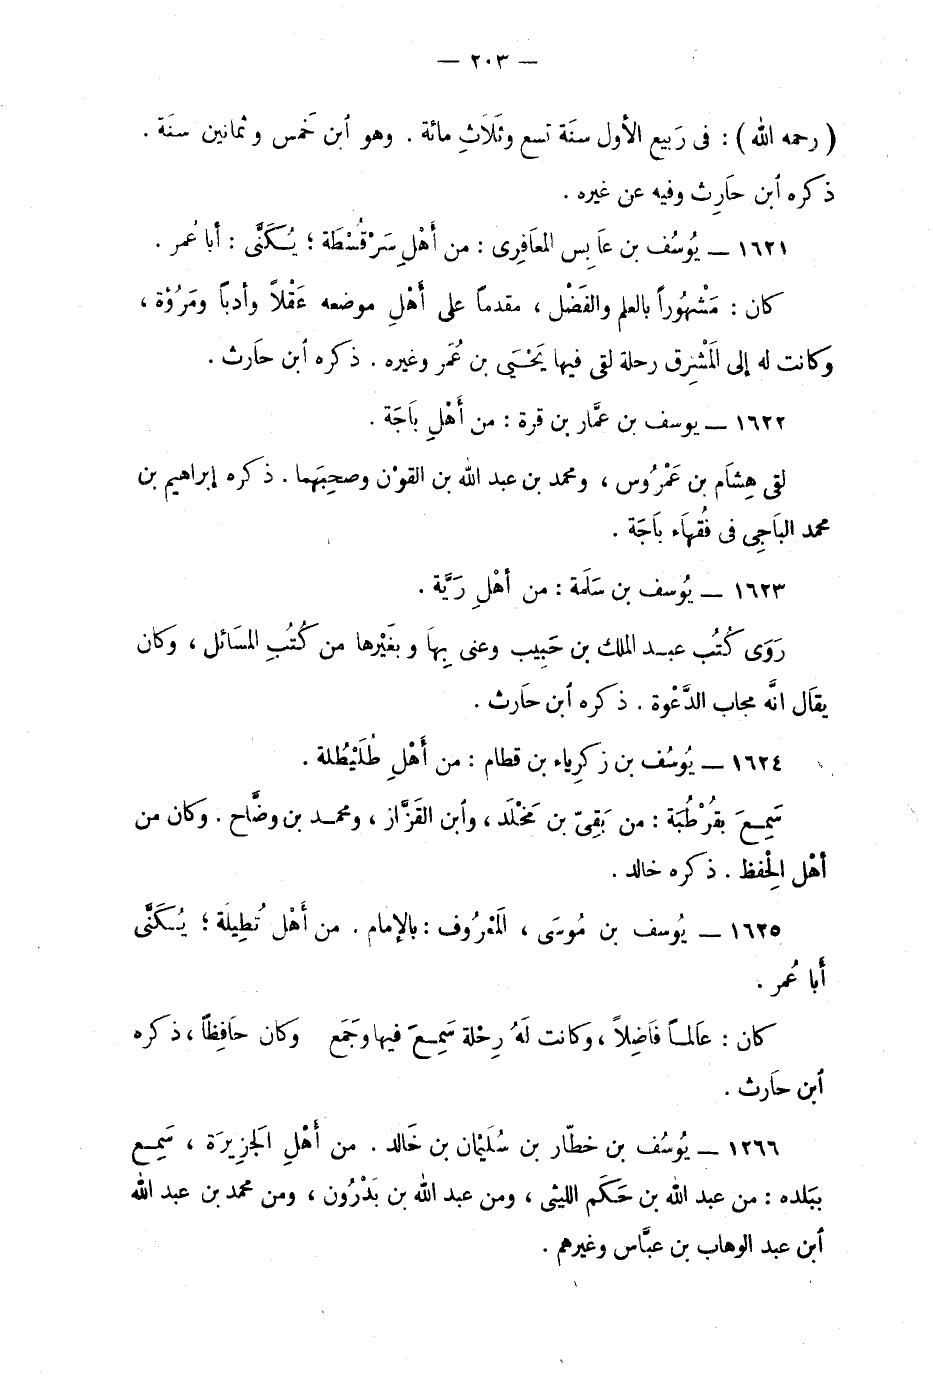 — ٢٠٣ —
( رحمه الله ) : فى رَبيع الأول سنَة تسع وثَلَاثِ مائة . وهو أبن خَمس وثمانين سنَة .
ذكره أبن حَارِث وفيه عن غيره .
١٦٢١ — يُوسُف بن عَابِس المعَافِرى : من أَهْلِ سَرْقُسْطَة ؛ يُكَنَّى : أبا عُمر .
كان : مَشْهُوراً بالعلم والفَضْل ، مقدماً على أَهْلِ موضعه عَقْلاً وأدباً ومَرُوْة ،
وكانت له إلى المَشْرِق رحلة لقى فيها يَحْيَي بن عُمَر وغيره . ذكره أبن حَارث .
١٦٢٢ — يوسف بن عمَّار بن قرة : من أَهْلِ بَاجَة .
لقى هِشَام بن عَمْرُوس ، ومحمد بن عبد الله بن القوْن وصحِبَهما . ذكره إبراهيم بن
محمد البَاجِى فى فُقهَاء بَاجَة .
١٦٢٣ — يُوسف بن سَلَمَة : من أهْلِ رَيَّة .
رَوَى كُتُب عبد الملك بن حَبِيب وعنى بِهَا وبغَيْرها من كُتُبِ المسَائل ، وكان
يقَال انَّه مجاب الدَّعْوة . ذكره أبن حَارث .
١٦٢٤ — يُوسُف بن زكرِياء بن قطام : من أَهْلِ طُلَيْطُلة .
سَمِعَ بقُرْطُبَة : من بَقِىّ بن مَخْلَد ، وأبن القَزَّاز ، ومحمد بن وضَّاح . وكان من
أهْل الحِفظ . ذكره خالد .
١٦٢٥ — يُوسف بن مُوسَى ، المَعْرُوف : بالإمام . من أَهْل تُطِيلَة ؛ يُكَنَّى
أَبا عُمر .
كان : عَالماً فَاضِلاً ، وكانت لَهُ رِحْلة سَمِعَ فيها وجَمَع وكان حَافِظاً ، ذكره
أبن حَارث .
١٢٦٦ — يُوسُف بن خطّار بن سُلَيْمان بن خَالد . من أَهْلِ الجَزِيرَة ، سَمِع
ببَلده : من عبد الله بن حَكَم الليثى ، ومن عبد الله بن بَدْرُون ، ومن محمد بن عبد الله
أبن عبد الوهاب بن عبَّاس وغيرهم .